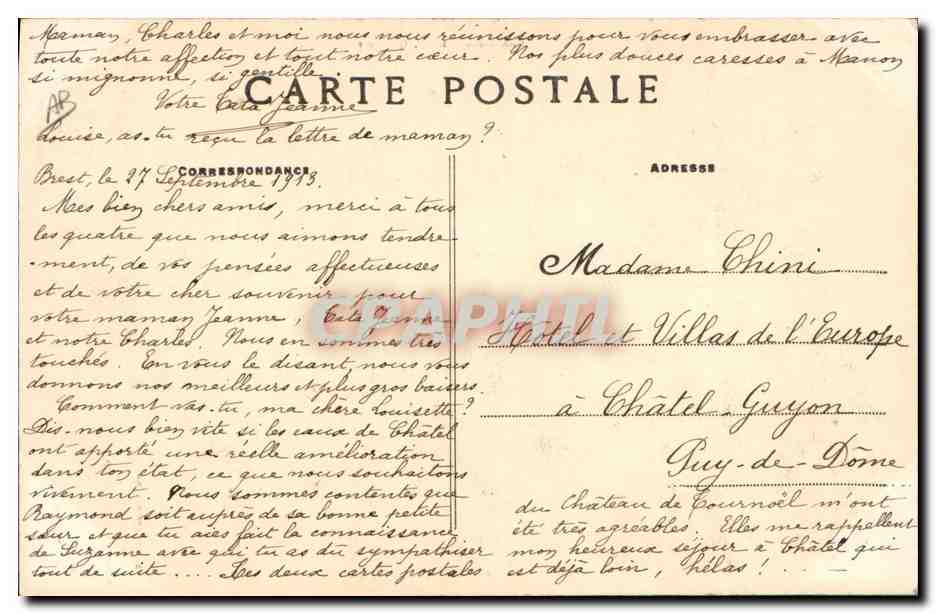 Maman, Charles et moi nous nous réunissons pour vous embrasser avec
toute notre affection et tout notre cœur. Nos plus douces caresses à Manon
si mignonne, si gentille.
CARTE POSTALE
AB
Votre Tata Jeanne
Louise, as-tu reçu la lettre de maman ?
CORRESPONDANCE
Brest, le 27 Septembre 1913.
Mes bien chers amis, merci à tous
les quatre que nous aimons tendre-
-ment, de vos pensées affectueuses
et de votre cher souvenir pour
votre maman Jeanne, Tata Jeanne
et notre Charles. Nous en sommes très
touchés. En vous le disant, nous vous
donnons nos meilleurs et plus gros baisers.
Comment vas-tu, ma chère Louisette ?
Dis-nous bien vite si les eaux de Châtel
ont apporté une réelle amélioration
dans ton état, ce que nous souhaitons
vivement. Nous sommes contentes que
Raymond soit auprès de sa bonne petite
sœur et que tu aies fait la connaissance
de Suzanne avec qui tu as du sympathiser
tout de suite .... Les deux cartes postales
ADRESSE
Madame Chini
Hôtel et Villas de l'Europe
à Châtel-Guyon
Puy-de-Dôme
du Château de Tournoël m'ont
été très agréables. Elles me rappellent
mon heureux séjour à Châtel qui
est déjà loin, hélas ! ...
CPAPHIL